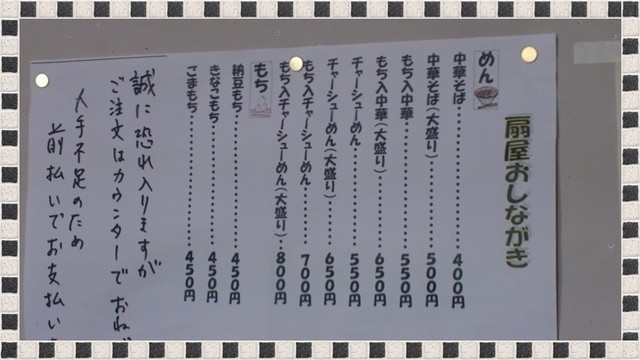 扇屋おしながき
めん
中華そば 400円
中華そば(大盛り) 500円
もち入中華 550円
もち入中華(大盛り) 650円
チャーシューめん 550円
チャーシューめん(大盛り) 650円
もち入チャーシューめん 700円
もち入チャーシューめん(大盛り) 800円
もち
納豆もち 450円
きなこもち 450円
ごまもち 450円
誠に恐れ入りますが
ご注文はカウンターでおね
人手不足のため
前払いでお支払い